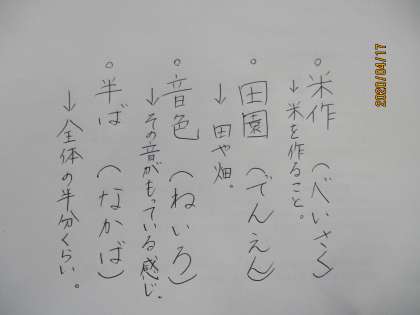 ○米作（べいさく）
→米を作ること。
○田園（でんえん）
→田や畑。
○音色（ねいろ）
→その音がもっている感じ。
○半ば（なかば）
→全体の半分くらい。
2020/04/17